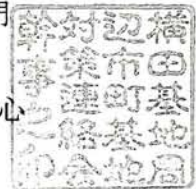 心
横田基地周
辺市町基地
対策連絡会
幹事之印